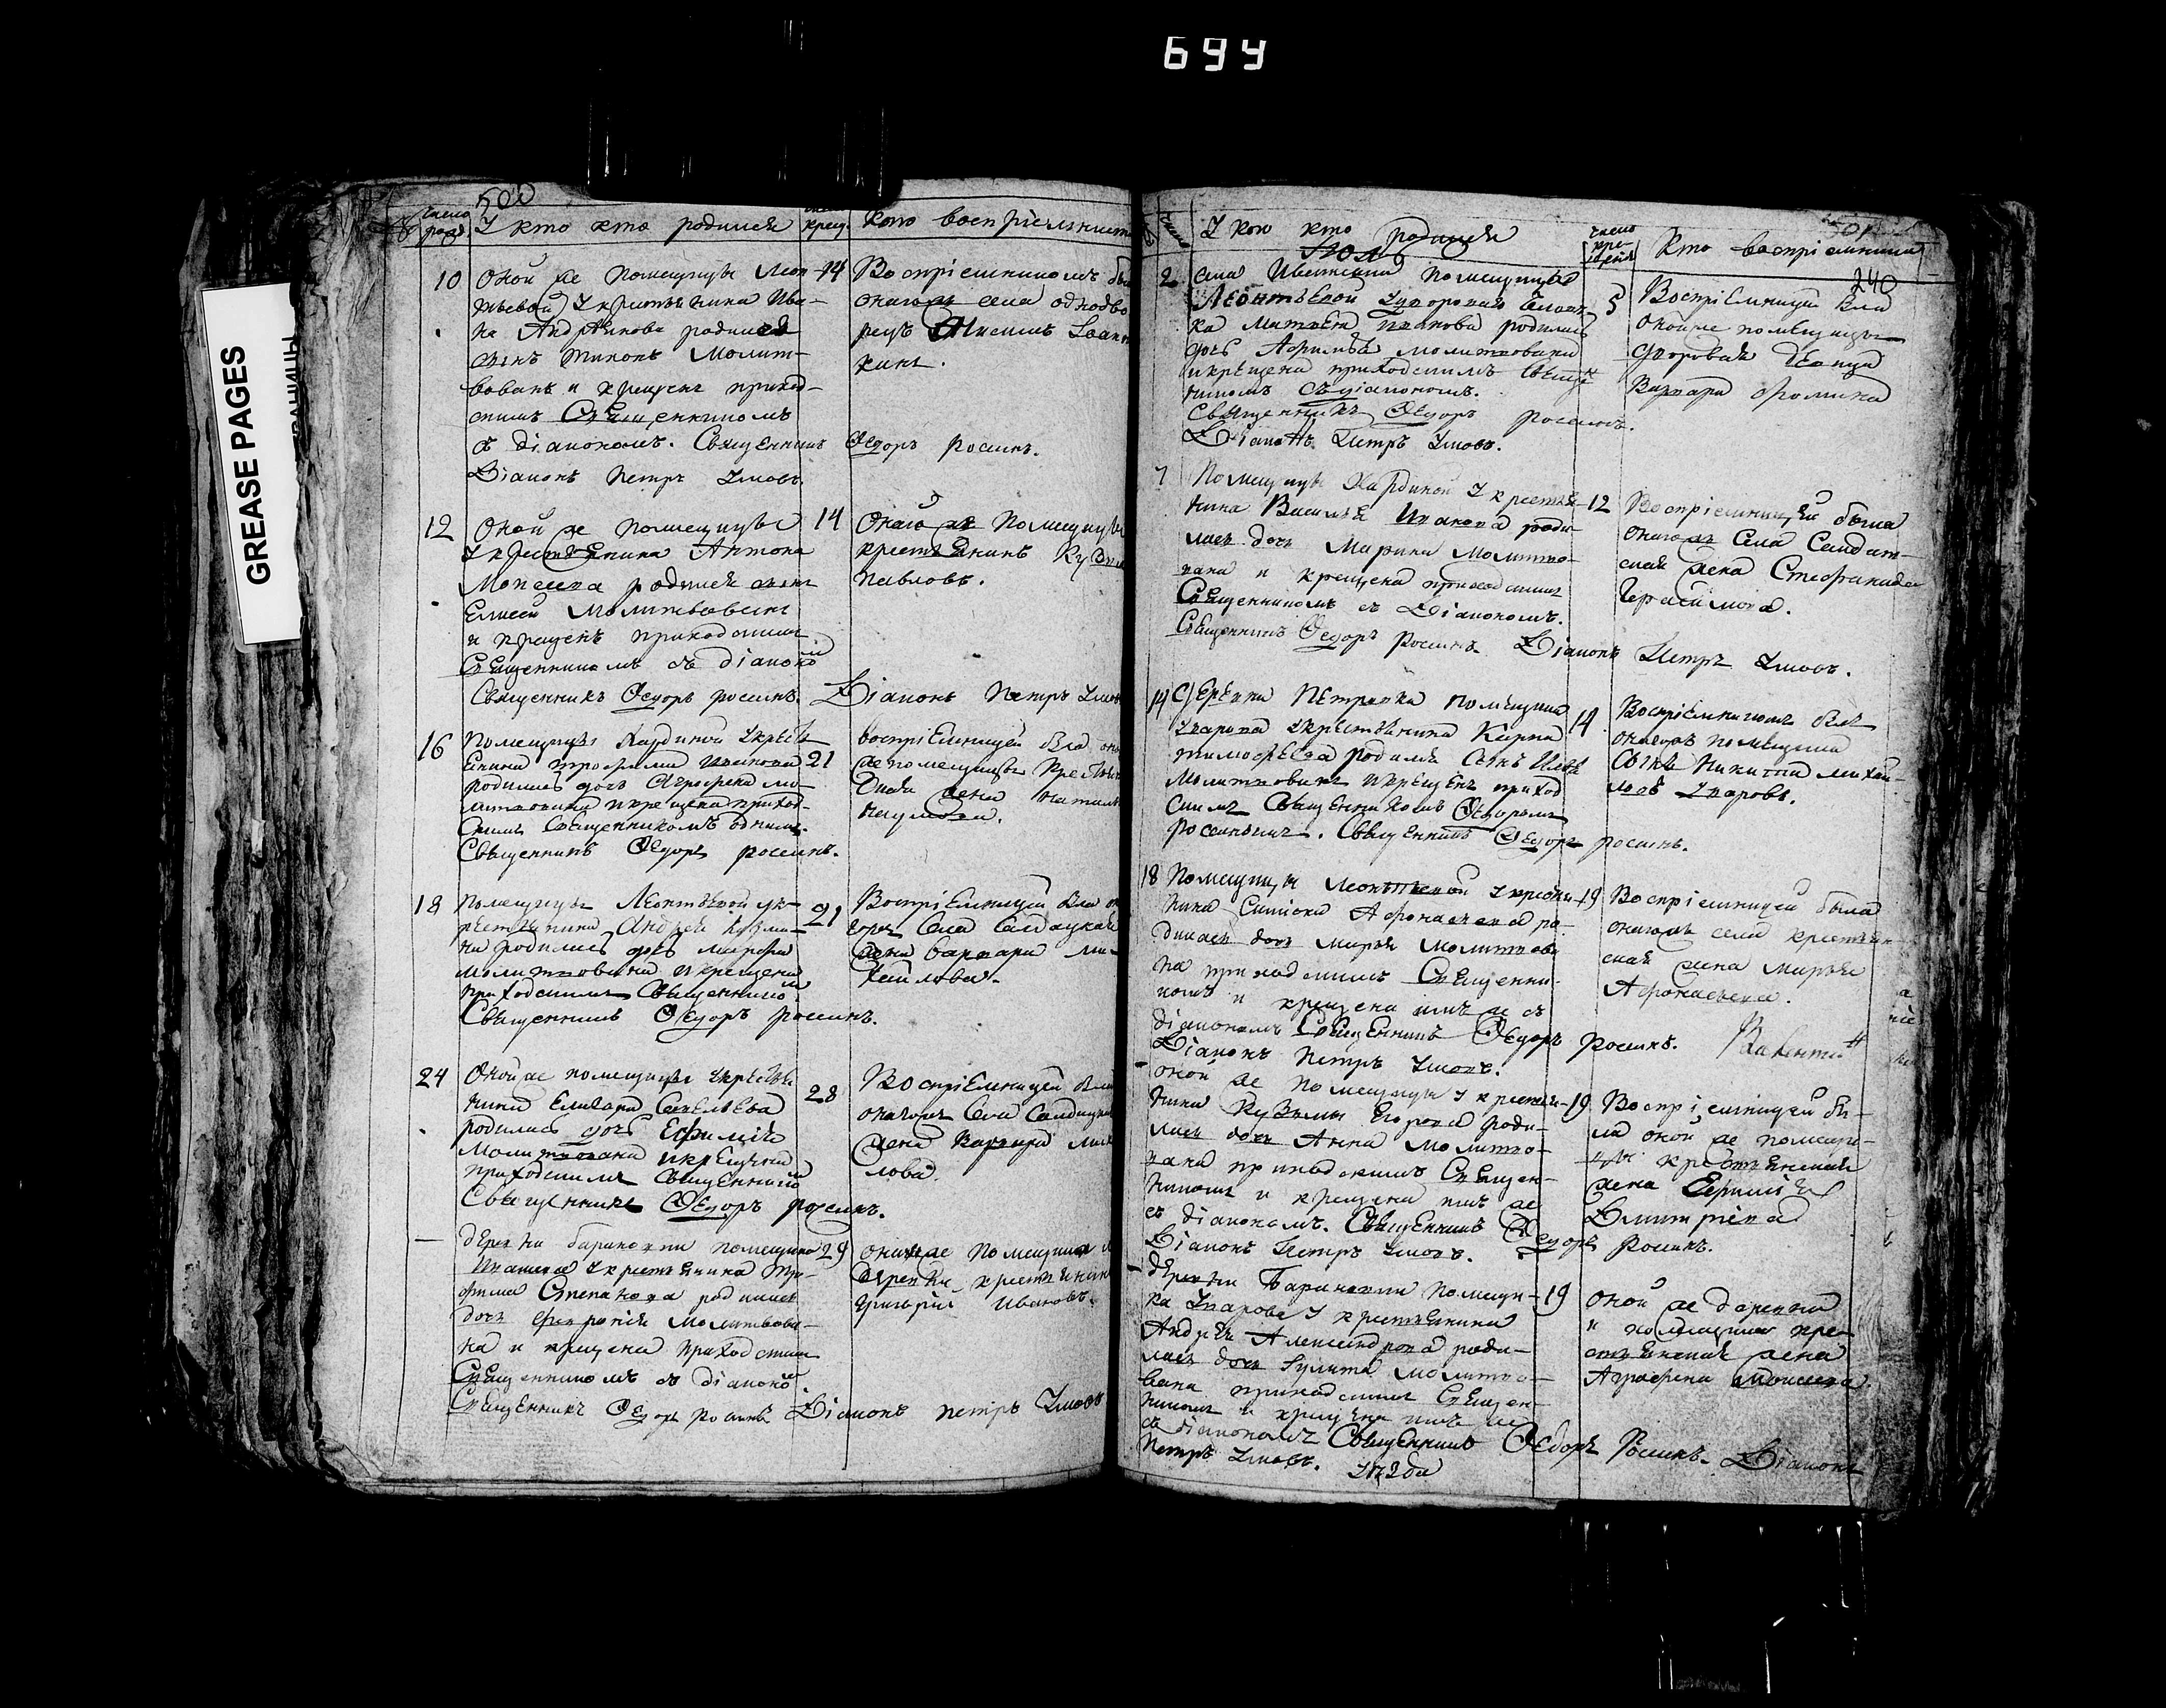 694
GREASE PAGES
500
число рожд.
У кого кто родился
крещ.
кто восприемники
10
Оной же помещицы Леон-
14
тьевой у крестьянина Ива-
на Андреянова родился
сынъ Тихонъ молит-
вованъ и крещенъ приход-
скимъ Священникомъ
съ діакономъ. Священникъ Федоръ Росинъ.
Діаконъ Петръ Умовъ.
Воспріемникомъ
онагожъ села однодво
рецъ
12
Оной же помещицы
14
у крестьянина Антона
Моисеева родился сынъ
Елисей молитвованъ
и крещенъ приходскимъ
Священникомъ съ діаконо
Священникъ Федоръ Росинъ. Діаконъ Петръ Умовъ
Оной же помещицы
крестьянинъ Кузма
Павловъ.
16
помещицы Хардиной у кресть
21
янина Трофима Иванова
родилась дочь Агрофена мо-
литвована и крещена приход-
скимъ Священникомъ однимъ.
Священникъ Федоръ Росинъ.
воспріемницей была
же помещицы крестьян
жена
Наумова.
18
помещицы Леонтьевой у к-
21
рестьянина Андрея Кузми-
на родилась дочь Мавра
молитвована и крещена
приходскимъ Священнико
Священникъ Федоръ Росинъ.
Воспріемницей была
села салдацкая
жена Варвара Ми-
хайлова.
24
Оной же помещицы у кресть
28
янина Елизара Савельева
родилась дочь Ефимія
молитвована и крещена
приходскимъ Священнико
Священникъ Федоръ Росинъ.
Воспріемницей была
онагожъ села салдацкая
жена Варвара Миха
лова.
деревни Барановки помещика
29
Ивашева у крестьянина Тро-
фима Степанова родилась
дочь Феврония молитвова-
на и крещена приходским
Священникомъ съ діаконо
Священникъ Федоръ Росинъ Діаконъ Петръ Умовъ
онагоже помещика и
деревни крестьянинъ
Григорій Ивановъ.
У кого кто родился
число кре-
щения
Кто воспріемники
Юль
240
2
села помещицы
5
Леонтьевой у дворовая челове
ка Матвея Иванова родилась
дочь Афимья молитвована
и крещена приходскимъ Священ
никомъ съ діакономъ.
Священникъ Федоръ Росинъ.
Діаконъ Петръ Умовъ.
Воспріемницей была
оной же помещицы
дворовая девица
Варвара Фомина
7
Помещицы Хардиной у крестья-
12
нина Василья Иванова роди-
лась дочь Марина молитво-
вана и крещена приходскимъ
Священникомъ съ Діакономъ.
Священникъ Федоръ Росинъ. Діаконъ Петръ Умовъ.
Воспріемницей была
онагожъ села салдат-
ская жена Стефанида
Герасимова.
14
деревни Петровки помещика
14
Уварова у крестьянина Карпа
Тимофеева родился сынъ Илья
молитвованъ и крещенъ приход
скимъ Священникомъ Федоромъ
Росинымъ. Священникъ Федоръ Росинъ.
Воспріемникомъ былъ
онагожъ помещика
сынъ Никита Михай-
ловъ Уваровъ.
18
Помещицы Леонтьевой у кресть-
19
нина Симиона Афонасьева ро-
дилась дочь Марья молитвова
на приходскимъ Священни-
комъ и крещена имъ же съ
діакономъ Священникъ Федоръ Росинъ.
Діаконъ Петръ Умовъ.
Воспріемницей была
онагожъ села крестьян
ская жена Марья
Афонасьева.
оной же помещицы у крестья-
19
нина Кузьмы Егорова роди-
лась дочь Анна молитво-
вана приходскимъ Священ-
никомъ и крещена имъ же
съ діакономъ. Священникъ Федоръ Росинъ.
Діаконъ Петръ Умовъ.
Воспріемницей бы-
ла оной же помещи-
цы крестьянская
жена Ефимія
Дмитріева
деревни Барановки помещи-
19
ка Уварова у крестьянина
Андрея Александрова роди-
лась дочь Улита молитво-
вана приходскимъ Священ-
никомъ и крещена имъ же
съ діакономъ Священникъ Федоръ Росинъ. Діаконъ
Петръ Умовъ.
оной же деревни
и помещика кре-
стьянская жена
Аграфена Моисеева.